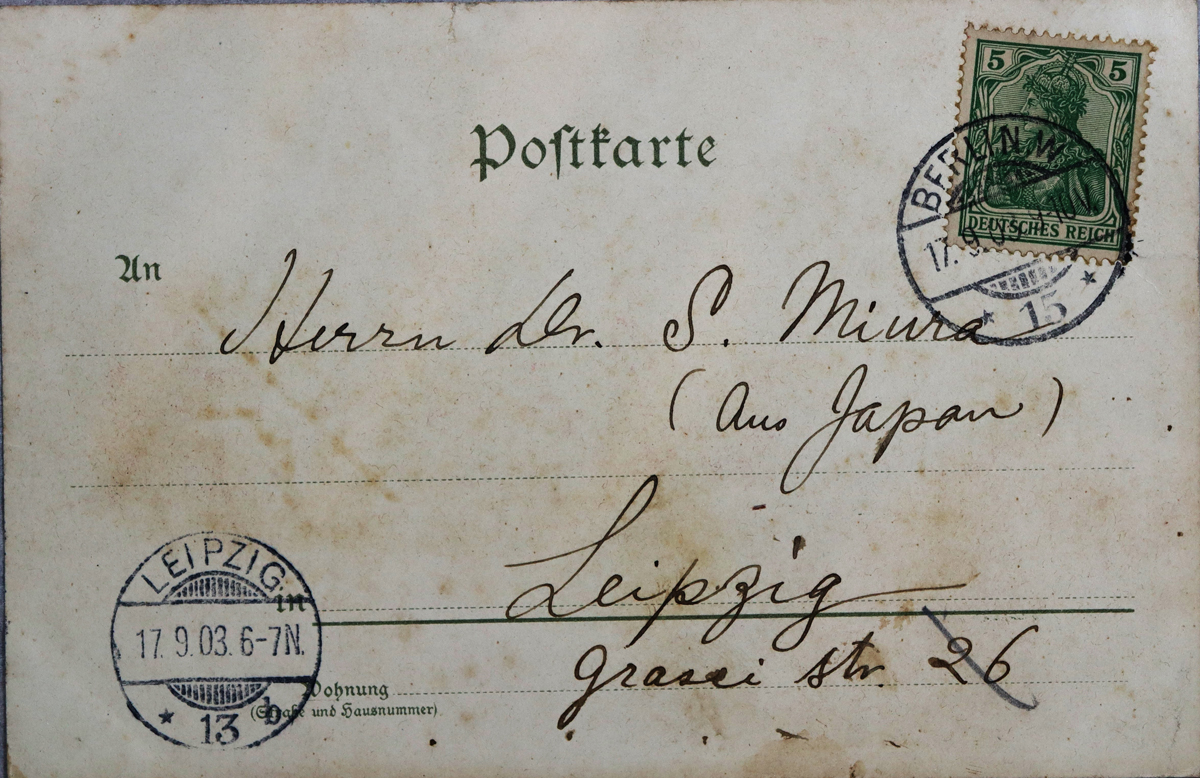 5 5
DEUTSCHES REICH
BERLIN W.
17. 9. 03
* 15 *
Postkarte
An
Herrn Dr. S. Miura
(Aus Japan)
Leipzig
in
Grassi str. 26
Wohnung
(Straße und Hausnummer)
LEIPZIG
17. 9. 03. 6-7N.
* 13 b